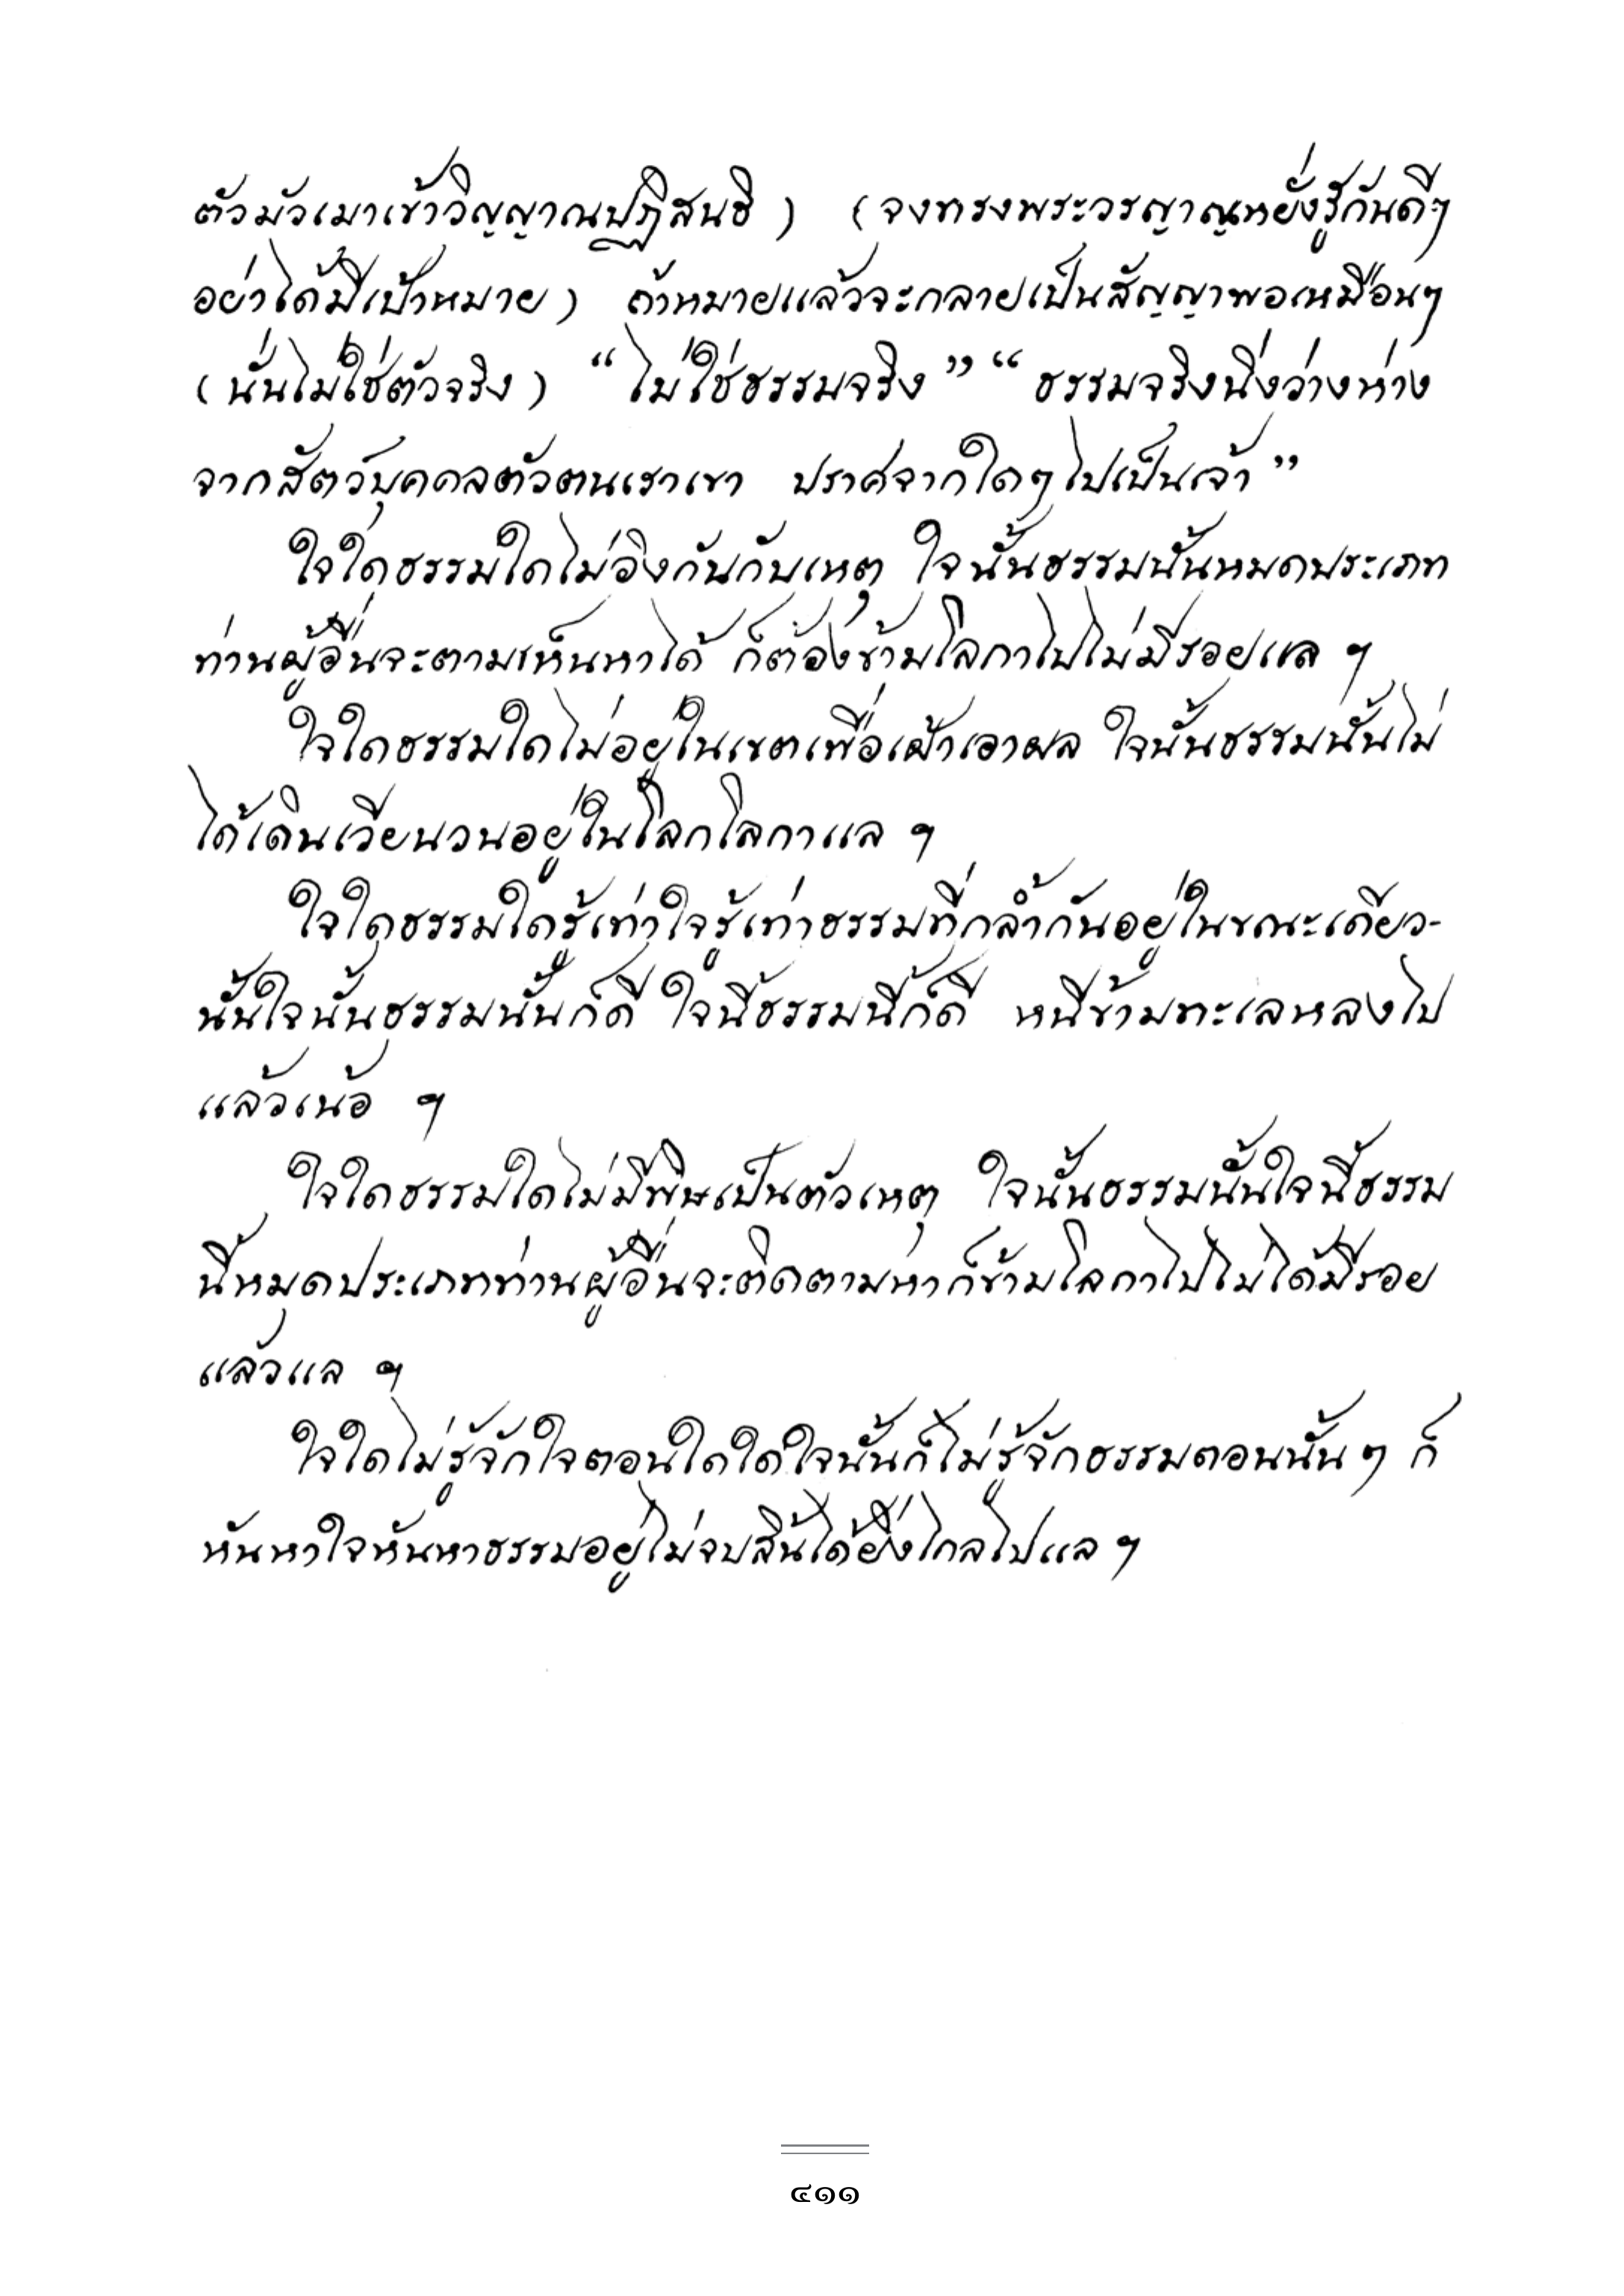 ตัวมัวเมาเข้าวิญญาณปฏิสนธิ ) (จงทรงพระวรญาณหยั่งรู้กันดีๆ
อย่าได้มีเป้าหมาย) ถ้าหมายแล้วจะกลายเป็นสัญญาพอเหมือนๆ
(นั่นไม่ใช่ตัวจริง) “ไม่ใช่ธรรมจริง” “ธรรมจริงนิ่งว่างห่าง
จากสัตว์บุคคลตัวตนเราเขา ปราศจากใดๆไปเป็นเจ้า”
ใจใดธรรมใดไม่อิงกันกับเหตุ ใจนั้นธรรมนั้นหมดประเภท
ท่านผู้อื่นจะตามเห็นหาได้ ก็ต้องข้ามโลกาไปไม่มีรอยแล ฯ
ใจใดธรรมใดไม่อยู่ในเขตเพื่อเฝ้าเอาผล ใจนั้นธรรมนั้นไม่
ได้เดินเวียนวนอยู่ในโลกโลกาแล ฯ
ใจใดธรรมใดรู้เท่าใจรู้เท่าธรรมที่กล้ำกันอยู่ในขณะเดียว-
นั้นใจนั้นธรรมนั้นก็ดี ใจนี้ธรรมนี้ก็ดี หนีข้ามทะเลหลงไป
แล้วเน้อ ฯ
ใจใดธรรมใดไม่มีพิษเป็นตัวเหตุ ใจนั้นธรรมนั้นใจนี้ธรรม
นี้หมดประเภทท่านผู้อื่นจะติดตามหาก็ข้ามโลกาไปไม่ได้มีรอย
แล้วแล ฯ
ใจใดไม่รู้จักใจตอนใดใดใจนั้นก็ไม่รู้จักธรรมตอนนั้นๆ ก็
หันหาใจหันหาธรรมอยู่ไม่จบสิ้นได้ยิ่งไกลไปแล ฯ
๔๑๑